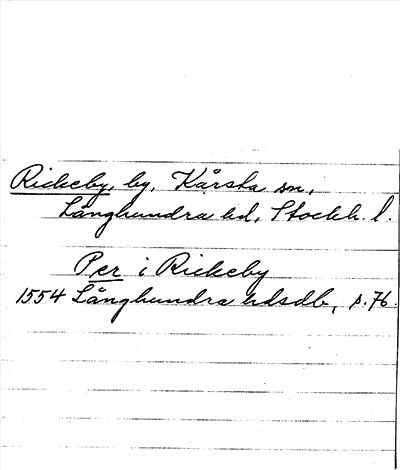 Rickeby, by, Kårsta sn,
Långhundra hd, Stockh. l.
Per i Rickeby
1554 Långhundra hdsdb, s. 76.